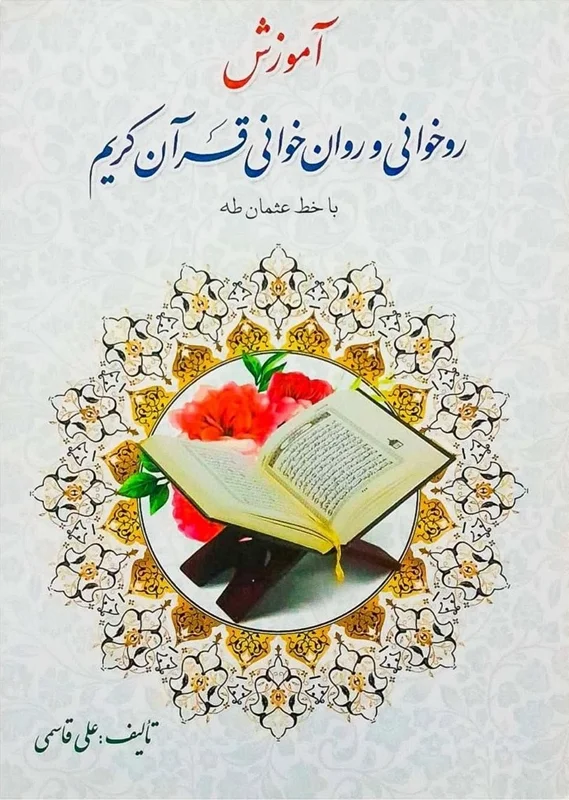 آموزش
روخوانی و روان خوانی قرآن کریم
با خط عثمان طه
تألیف: علی قاسمی